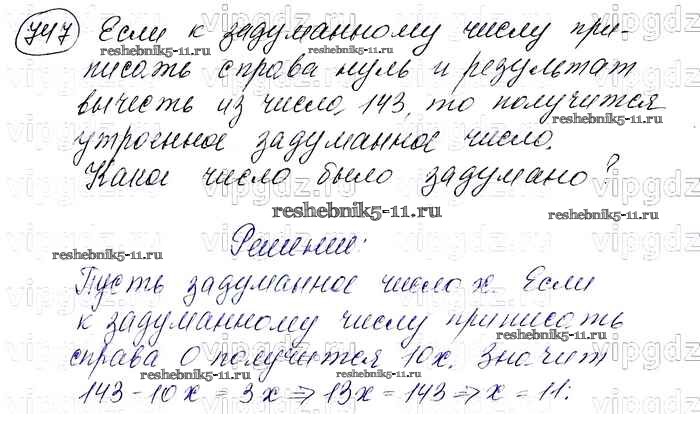 747 Если к задуманному числу при-
reshebnik5-11.ru
писать справа нуль и результат
вычесть из числа 143, то получится
reshebnik5-11.ru
утроенное задуманное число.
Какое число было задумано?
reshebnik5-11.ru
Решение:
reshebnik5-11.ru
Пусть задуманное число x. Если
к задуманному числу приписать
справа 0 получится 10x. Значит
reshebnik5-11.ru reshebnik5-11.ru
143 - 10x = 3x => 13x = 143 => x = 11.